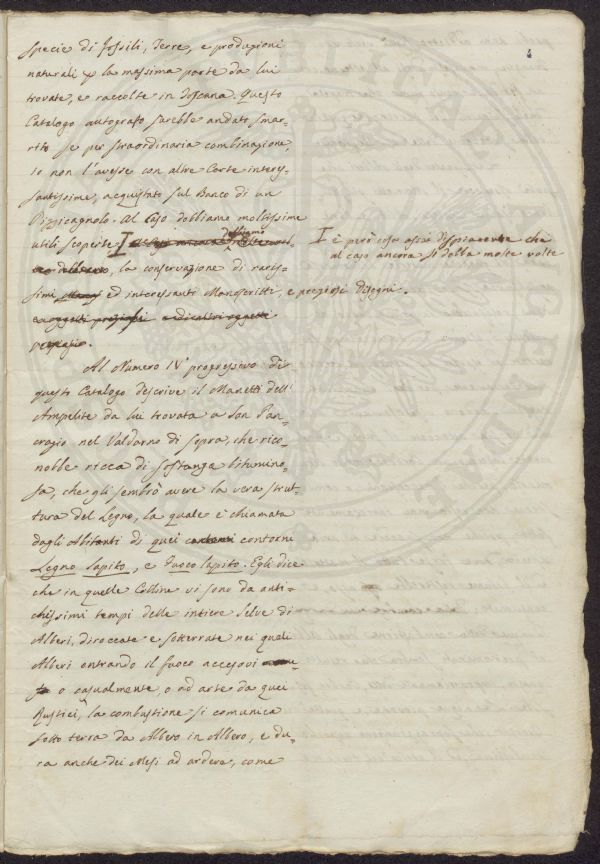 4
specie di Fossili, Terre, e produzioni
naturali p la massima parte da lui
trovate, e raccolte in Toscana. Questo
Catalogo autografo sarebbe andato smar-
rito se per straordinaria combinazione,
io non l'avessi con altre Carte interes-
santissime, acquistato sul Banco di un
Pizzicagnolo. Al Caso dobbiamo moltissime
utili scoperte
dobbiamo
è però cosa assai dispiacente che
al caso ancora si debba molte volte
, la conservazione di raris-
simi ed interessanti Manoscritti, e preziosi disegni.
e oggetti preziosi
Al Numero IV progressivo di
questo Catalogo descrive il Manetti dell'
Ampelite da lui trovata a San Pan-
crazio nel Valdarno di sopra, che rico-
nobbe ricca di sostanza bitumino-
sa, che gli sembrò avere la vera strut-
tura del Legno, la quale è chiamata
dagli Abitanti di quei contorni
Legno sapito, e Fuoco sapito. Egli dice
che in quelle Colline vi sono da anti-
chissimi tempi delle intiere Selve di
Alberi, diroccate e sotterrate nei quali
Alberi entrando il fuoco accesovi
o casualmente, o ad arte da quei
Rustici, la combustione si comunica
sotto terra da Albero in Albero, e du-
ra anche dei Mesi ad ardere, come